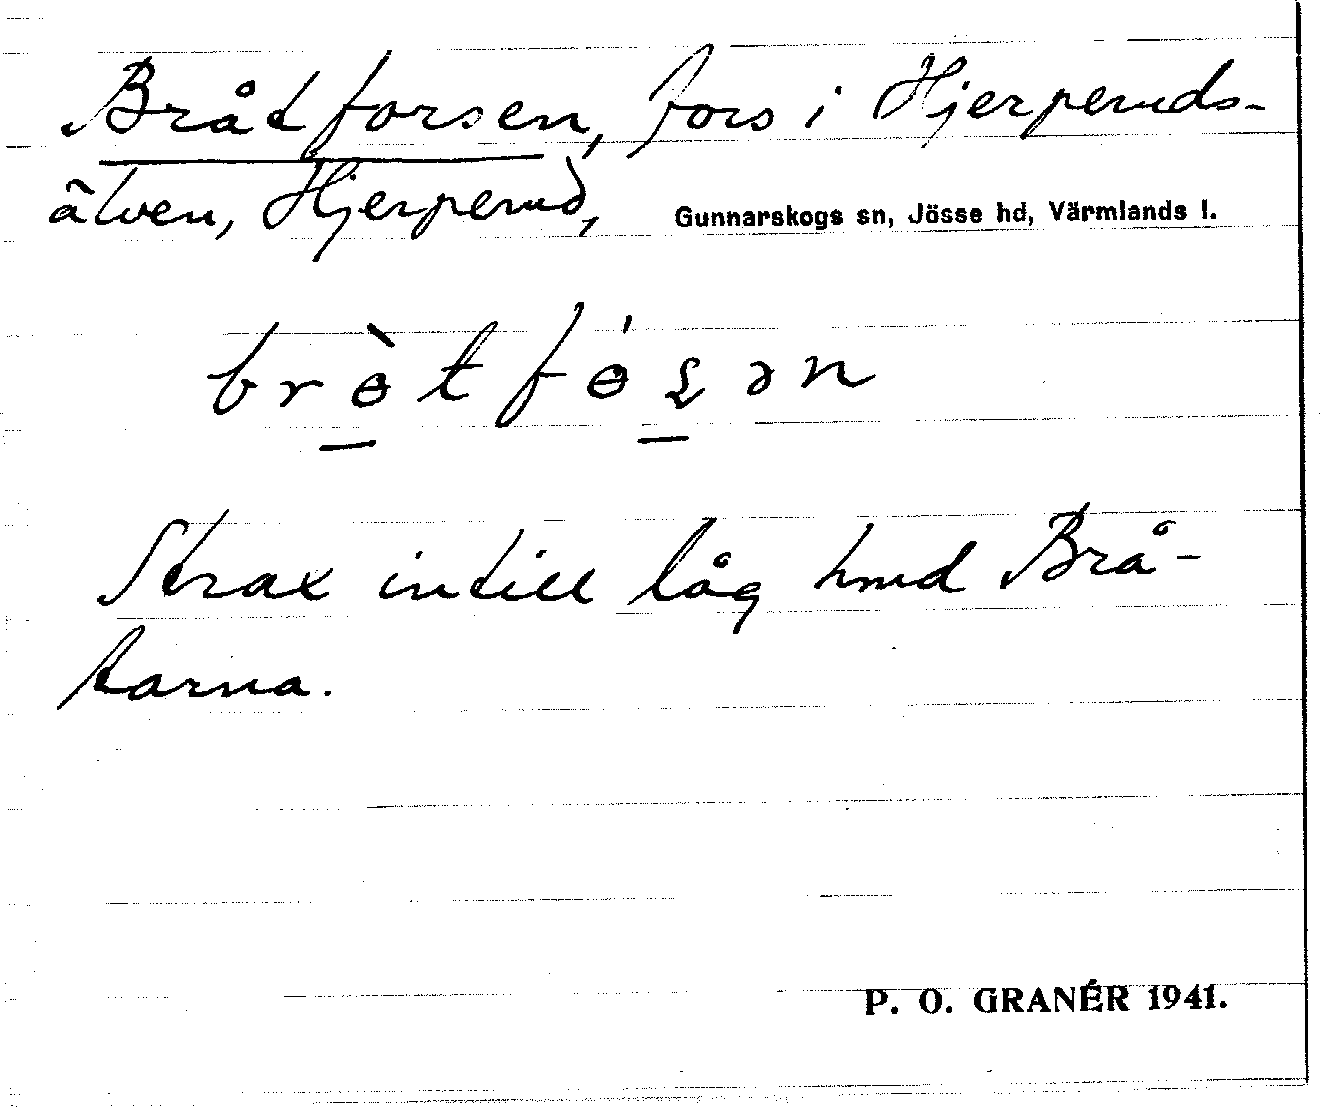 Bråtforsen, fors i Hjerperuds-
älven, Hjerperud, Gunnarskogs sn, Jösse hd, Värmlands l.
brɵ̀tfɵ́ʂən
Strax intill låg hmd Brå-
tarna.
P. O. GRANÉR 1941.